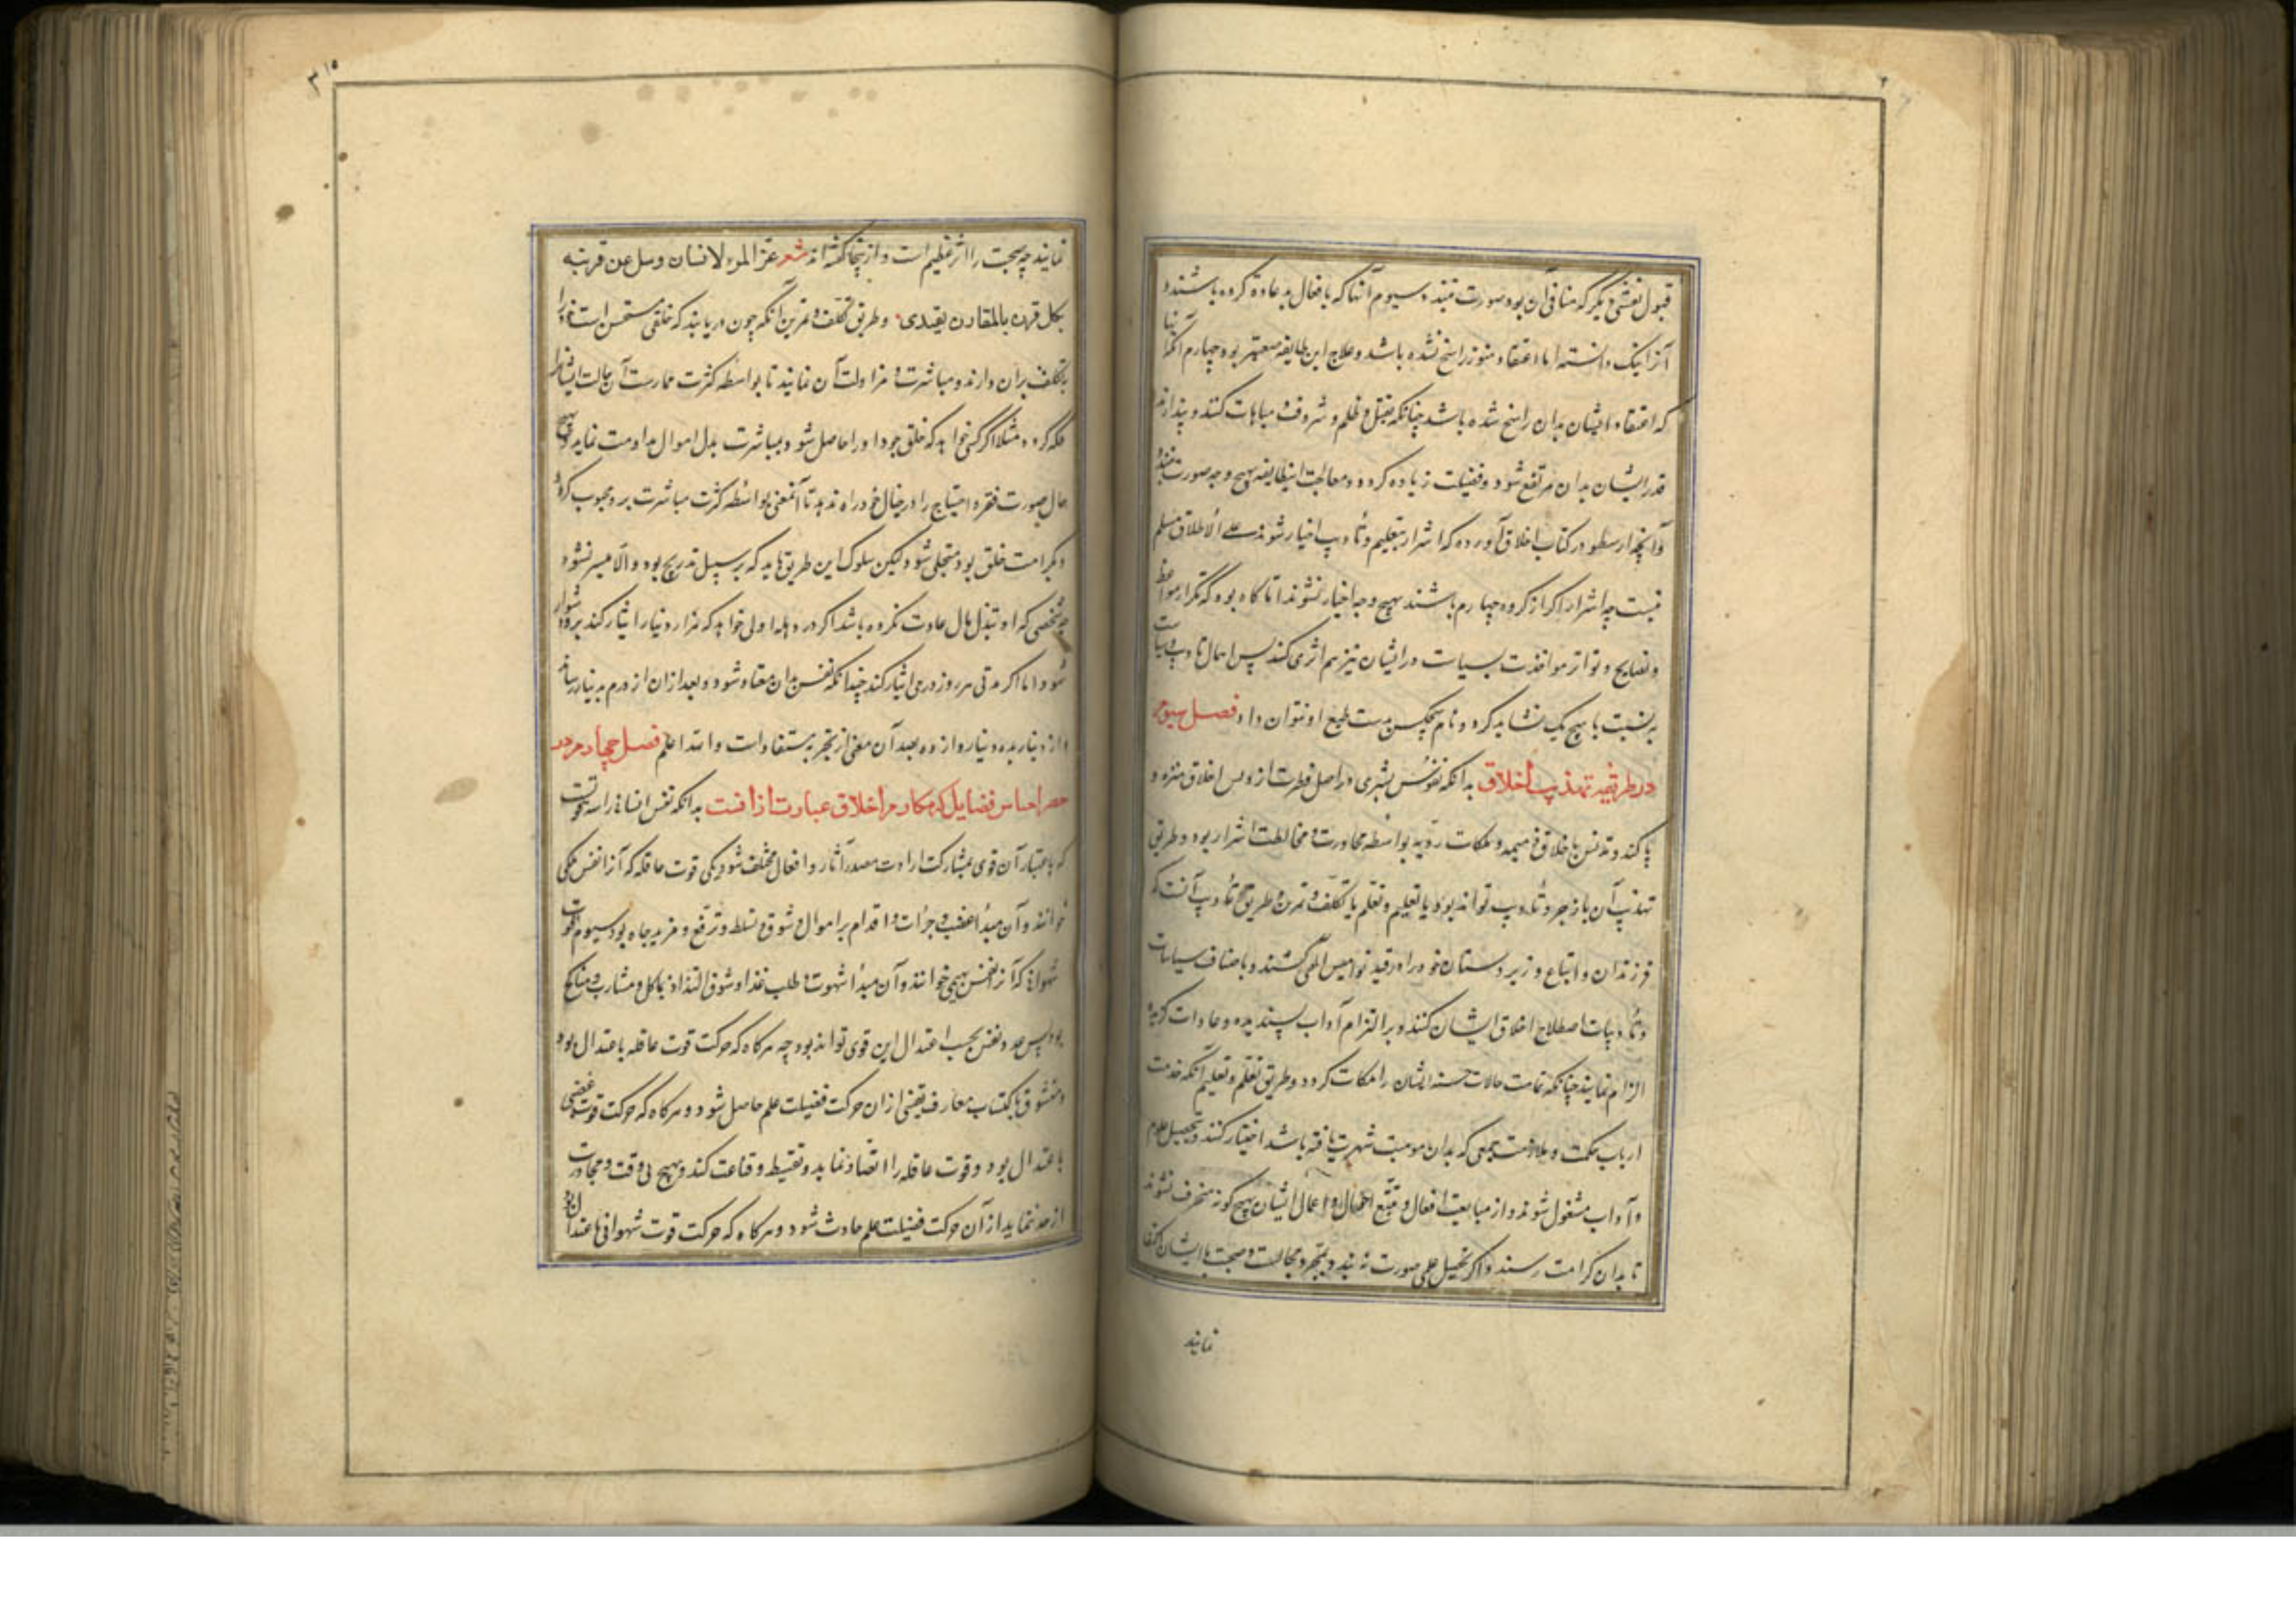 قبول نقشی دیگر که منافی آن بود صورت نبندد سیوم آنها که بافعال بد عادة کرده باشند و
آنرا نیک دانسته اما اعتقاد هنوز راسخ نشده باشد و علاج این طایفه صعبتر بود چهارم آنها
که اعتقاد ایشان بدان راسخ شده باشد چنانکه بقتل و ظلم و شر و فخر مباهات کنند و پندارند
قدر ایشان بدان مرتفع شود و فضیلت زیاده کردد و معالجت اینطایفه بهیچ وجه صورت نبندد
و آنچه ارسطو در کتاب اخلاق آورده که اشرار بتعلیم و تأدیب اخیار شوند علی الاطلاق مسلم
نیست چه اشرار اکر از کروه چهارم باشند بهیچ وجه اخیار نشوند اما کاه بود که تکرار مواعظ
و نصایح و تواتر مواخذت بسیاسات در ایشان نیز هم اثری کند پس اهمال تادیب و سیاست
به نسبت با هیچ یک نشاید کرد و زمام هیچکس بدست طبع او نتوان داد فصل سیوم
در طریقه تهذیب اخلاق بدانکه نفوس بشری در اصل فطرت ازدنس اخلاق منزه و
پاکند و تدنس باخلاق ذمیمه و ملکات ردیه بواسطه مجاورت و مخالطت اشرار بود و طریق
تهذیب آن باز بزجر و تأدیب تواند بود یا بتعلیم و تعلم یا تکلف و تمرن طریق تأدیب آنست که
فرزندان و اتباع و زیردستان خود را در قید نوامیس الهی کشند و باصناف سیاسات
و تأدیبات اصلاح اخلاق ایشان کنند و بر التزام آداب پسندیده و عادات کریمه
الزام نمایند چنانکه تمامت حالات حسنه ایشان را ملکات کردد و طریق تعلم و تعلیم آنکه خدمت
ارباب حکمت و ملازمت جمعی که بدان موهبت شهرت یافته باشد اختیار کنند و بتحصیل علوم
و آداب مشغول شوند و از متابعت افعال و تتبع اقوال و اعمال ایشان بهیچ کونه منحرف نشوند
تا بدان کرامت رسند و اکر تحصیل علمی صورت نه بندد بمجرد مجالست و صحبت با ایشان اکتفا
نمایند
نمایند چه صحبت را اثر عظیم است و از ینجا کفته اند شعر عن المرء لا تسأن و سل عن قرینه
فکل قرین بالمقارن یقتدی و طریق تکلف و تمرین آنکه چون دریابند که خلقی مستحسن است خود را
بتکلف بران دارند و مباشرت و مزاولت آن نمایند تا بواسطه کثرت ممارست آن حالت ایشانرا
ملکه کردد مثلا اکر کسی خواهد که خلق جود او را حاصل شود بمباشرت بذل اموال مداومت نماید و بهیچ
حال صورت فقر و احتیاج را در خیال خود راه ندهد تا آنمعنی بواسطه کثرت مباشرت بر و محبوب کردد
و بکرامت خلق بود متجلی شود لیکن سلوک این طریق باید که بر سبیل تدریج بود و الا میسر نشود
چه شخصی که او تبذل مال عادت نکرده باشد اکر در وهله اولی خواهد که هزار دینار ایثار کند بر و دشوار
شود اما اکر مدتی هر روز درمی ایثار کند چندانکه نفس بدان معتاد شود و بعد ازان از درم بدینار رساند
و از دینار بده دینار و از ده بصد آن معنی از تجربه مستفاد است و الله اعلم فصل چهارم در
حصر اجناس فضایل که مکارم اخلاق عبارت از آنست بدانکه نفس انسانی را سه قوت
که باعتبار آن قوی بمشارکت ارادت مصدر آثار و افعال مختلف شود یکی قوت عاقله که آنرا نفس ملکی
خوانند و آن مبدأ غضب و جرأت و اقدام بر اموال و شوق و تسلط و ترفع و مزید جاه بود سیوم قوت
شهوانی که آنرا نفس بهیمی خوانند و آن مبدأ شهوت و طلب غذا و شوق التذاذ بماکل و مشارب و مناکح
بود پس عدد نفس بحسب اعتدال این قوی تواند بود چه هرکاه که حرکت قوت عاقله باعتدال بود
و متشوق باکتساب معارف یقینی ازان حرکت فضیلت علم حاصل شود و هرکاه که حرکت قوت غضبی
باعتدال بود و قوت عاقله را انقیاد نماید و بقسط و قناعت کند و بهیچ بی وقت و مجاوزت
از حد ننماید از آن حرکت فضیلت حلم حادث شود و هرکاه که حرکت قوت شهوانی باعتدال بود